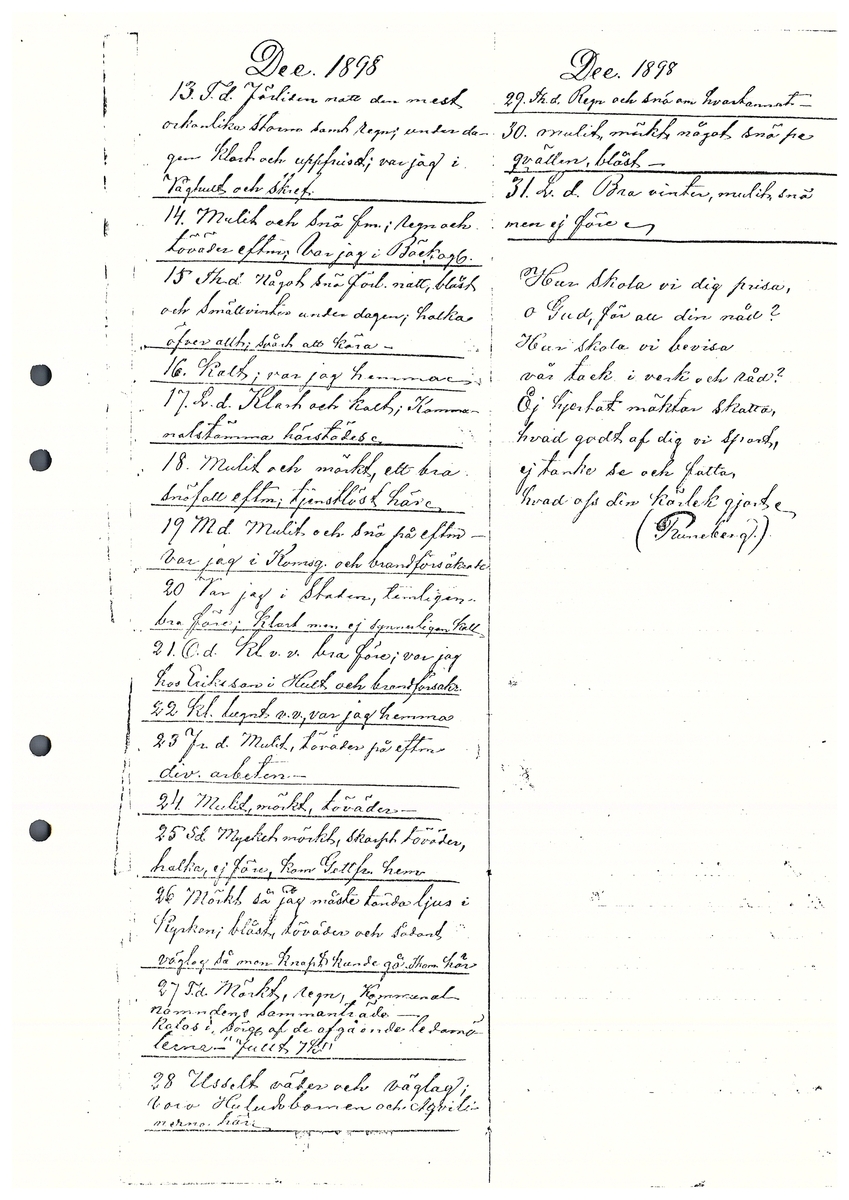 Dec. 1898
13. T.d. Förliden natt den mest
orkanlika storm samt regn; under da-
gen klart och uppfriskt; var jag i
Våghult och skref.
14. Mulit och snö fm.; regn och
töväder eftm; Var jag i
15 Th.d Något snö förl. natt, blåst
och småltvinter under dagen; halka
öfver allt; svårt att köra —
16. Kalt; var jag hemma
17. L.d. Klart och kalt; Kommu-
nalstämma härstädes
18. Mulit och mörkt, ett bra
snöfall eftm; tjenstlöst här
19 Md. Mulit och snö på eftm —
var jag i Komsg. och brandförsäkrade
20 Var jag i Staden, temligen
bra före; klart men ej synnerligen kalt
21. O.d. Kl v.v. bra före; var jag
hos Erikson i Hult och brandförsäkr.
22 Kl. lugnt v.v, var jag hemma
23 Fr. d. Mulit, töväder på eftm
div. arbeten —
24 Mulit, mörkt, töväder —
25 Sd Mycket mörkt, skarpt töväder,
halka, ej före, kom Gottfr. hem
26 Mörkt så jag måste tända ljus i
Kyrkan; blåst, töväder och sådant
väglag så man knapt kunde gå. Thom. här
27 T.d. Mörkt, regn, Kommunal
nämndens sammanträde —
Kalas i af de afgående ledamö-
terne —
28 Usselt väder och väglag;
voro
här
Dec. 1898
29. Th.d. Regn och snö om hvartannat —
30. mulit, mörkt, något snö på
qvällen, blåst —
31. L. d. Bra vinter, mulit, snö
men ej före
Hur skola vi dig prisa,
o Gud, för all din nåd?
Hur skola vi bevisa
vår tack i verk och råd?
Ej hjertat mäktar skatta,
hvad godt af dig vi sport,
ej tanke se och fatta,
hvad oss din kärlek gjort
(Runeberg.)